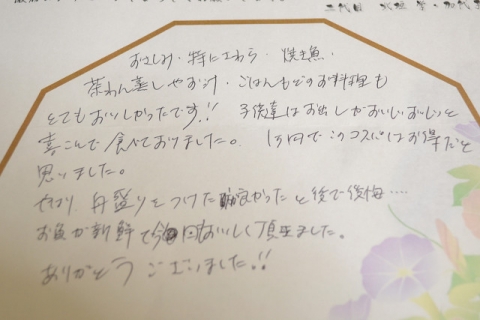 おさしみ・特にさわら・焼き魚・
茶わん蒸しやお汁・ごはんもどのお料理も
とてもおいしかったです!! 子供達はお出しがおいしいおいしいと
喜こんで食べておりました。 1万円でこのコスパはお得だと
思いました。
やはり、舟盛りをつけた 良かったと後で後悔....
お魚が新鮮で今回おいしく頂きました。
ありがとうございました!!